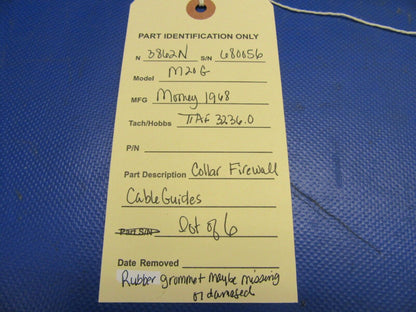 PART IDENTIFICATION ONLY
N 3862N S/N 680056
Model M20G
MFG Mooney 1968
Tach/Hobbs TTAF 3236.0
P/N
Part Description Collar Firewall
Cable Guides
Part S/N Lot of 6
Date Removed
Rubber grommet maybe missing
or damaged